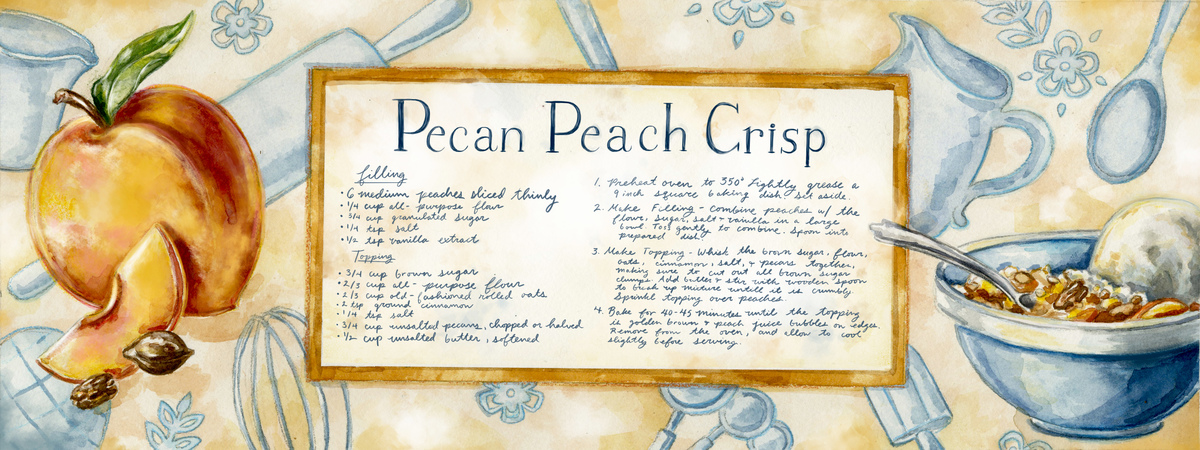 Pecan Peach Crisp
filling
• 6 medium peaches sliced thinly
• 1/4 cup all-purpose flour
• 3/4 cup granulated sugar
• 1/4 tsp salt
• 1/2 tsp vanilla extract
Topping
• 3/4 cup brown sugar
• 2/3 cup all-purpose flour
• 2/3 cup old-fashioned rolled oats
• 2 tsp ground cinnamon
• 1/4 tsp salt
• 3/4 cup unsalted pecans, chopped or halved
• 1/2 cup unsalted butter, softened
1. Preheat oven to 350° Lightly grease a
9 inch square baking dish. Set aside.
2. Make Filling - Combine peaches w/ the
flour, sugar, salt + vanilla in a large
bowl. Toss gently to combine. Spoon into
prepared dish.
3. Make Topping - Whisk the brown sugar, flour,
oats, cinnamon, salt, + pecans together,
making sure to cut out all brown sugar
clumps. Add butter + stir with wooden spoon
to break up mixture untill it is crumbly
Sprinkl topping over peaches.
4. Bake for 40-45 minutes until the topping
is golden brown + peach juice bubbles on edges.
Remove from the oven, and allow to cool
slightly before serving.